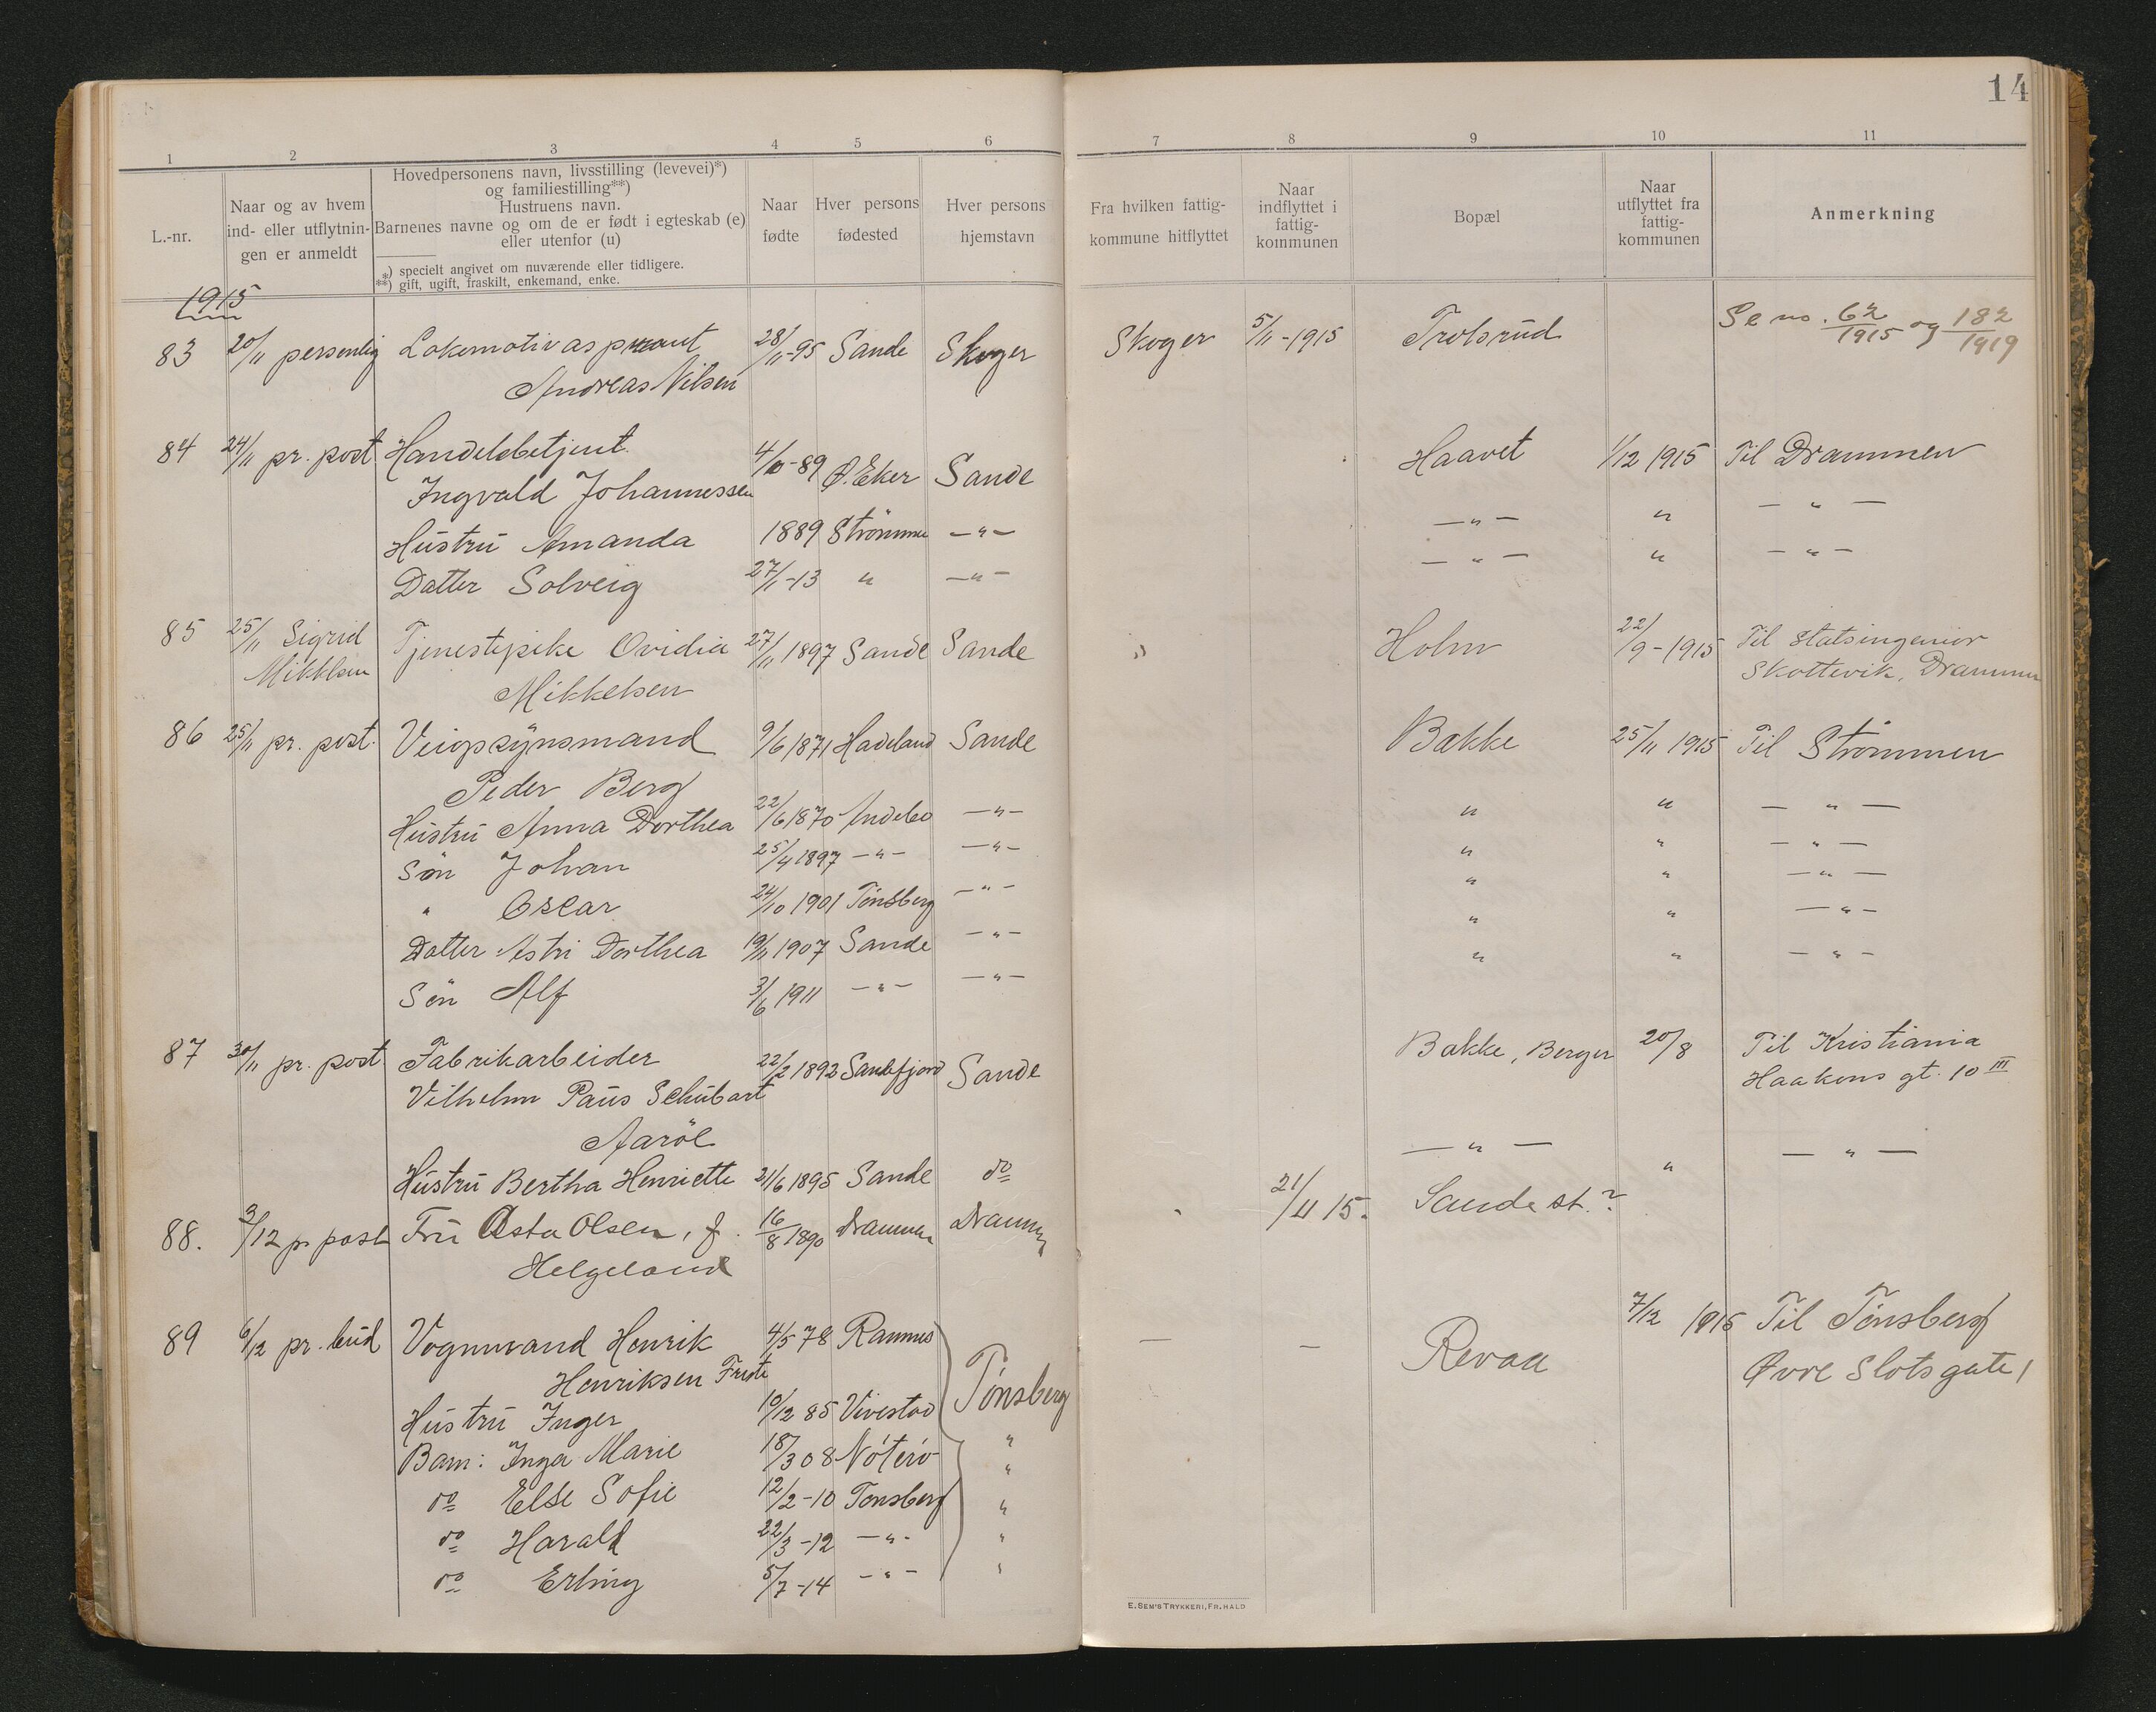 14
1 2 3 4 5 6 7 8 9 10 11
L.-nr.
Naar og av hvem
ind- eller utflytnin-
gen er anmeldt
Hovedpersonens navn, livsstilling (levevei)*)
og familiestilling**)
Hustruens navn.
Barnenes navne og om de er født i egteskab (e)
eller utenfor (u)
*) specielt angivet om nuværende eller tidligere.
**) gift, ugift, fraskilt, enkemand, enke.
Naar
fødte
Hver persons
fødested
Hver persons
hjemstavn
Fra hvilken fattig-
kommune hitflyttet
Naar
indflyttet i
fattig-
kommunen
Bopæl
Naar
utflyttet fra
fattig-
kommunen
Anmerkning
1915
83 20/11 personlig Lokomotivaspirant 28/11-95 Sande Skoger Skoger 5/11-1915 Trolsrud Se no. 62/1915 og 182/1919
Andreas Nilsen
84 24/11 pr. post Handelsbetjent 4/10-89 Ø. Eker Sande Haavet 1/12 1915 Til Drammen
Ingvald Johannessen
Hustru Amanda 1889 Strömmen —"— —"— " —"—
Datter Solveig 27/1-13 " —"— —"— " —"—
85 25/11 Sigrid Tjenestepike Ovidia 27/11 1897 Sande Sande " Holm 22/9-1915 Til Statsingeniör
Mikkelsen Mikkelsen Skottevik, Drammen
86 25/11 pr. post. Veiopsynsmand 9/6 1871 Hadeland Sande Bakke 25/11 1915 Til Strömmen
Peder Berg
Hustru Anna Dorthea 22/6 1870 Andebo —"— " " —"—
Sön Johan 25/4 1897 —"— —"— " " —"—
" Oscar 24/10 1901 Tönsberg —"— " " —"—
Datter Astri Dorthea 19/11 1907 Sande —"— " " —"—
Sön Alf 3/6 1911 —"— —"— " " —"—
87 30/11 pr. post Fabrikarbeider 22/2 1892 Sandefjord Sande Bakke, Berger 20/8 Til Kristiania
Vilhelm Paus Schubart Haakons gt. 10 III
Aaröe
Hustru Bertha Henriette 21/6 1895 Sande do —"— " —"—
88. 3/12 p post Fru Asta Olsen, f. 16/8 1890 Drammen Drammen 21/11 15. Sande st.?
Helgeland
89 6/12 pr. bud Vognmand Henrik 4/5 78 Ramnes Tönsberg — — Revaa 7/12 1915 Til Tönsberg
Henriksen Øvre Slotsgate 1
Hustru Inger 10/12 85 Vivestad
Barn: Inga Marie 18/3 08 Nöterö "
do Else Sofie 12/2-10 Tönsberg "
do Harald 22/3-12 —"— "
do Erling 5/7-14 —"— "
E. SEM'S TRYKKERI, FR.HALD